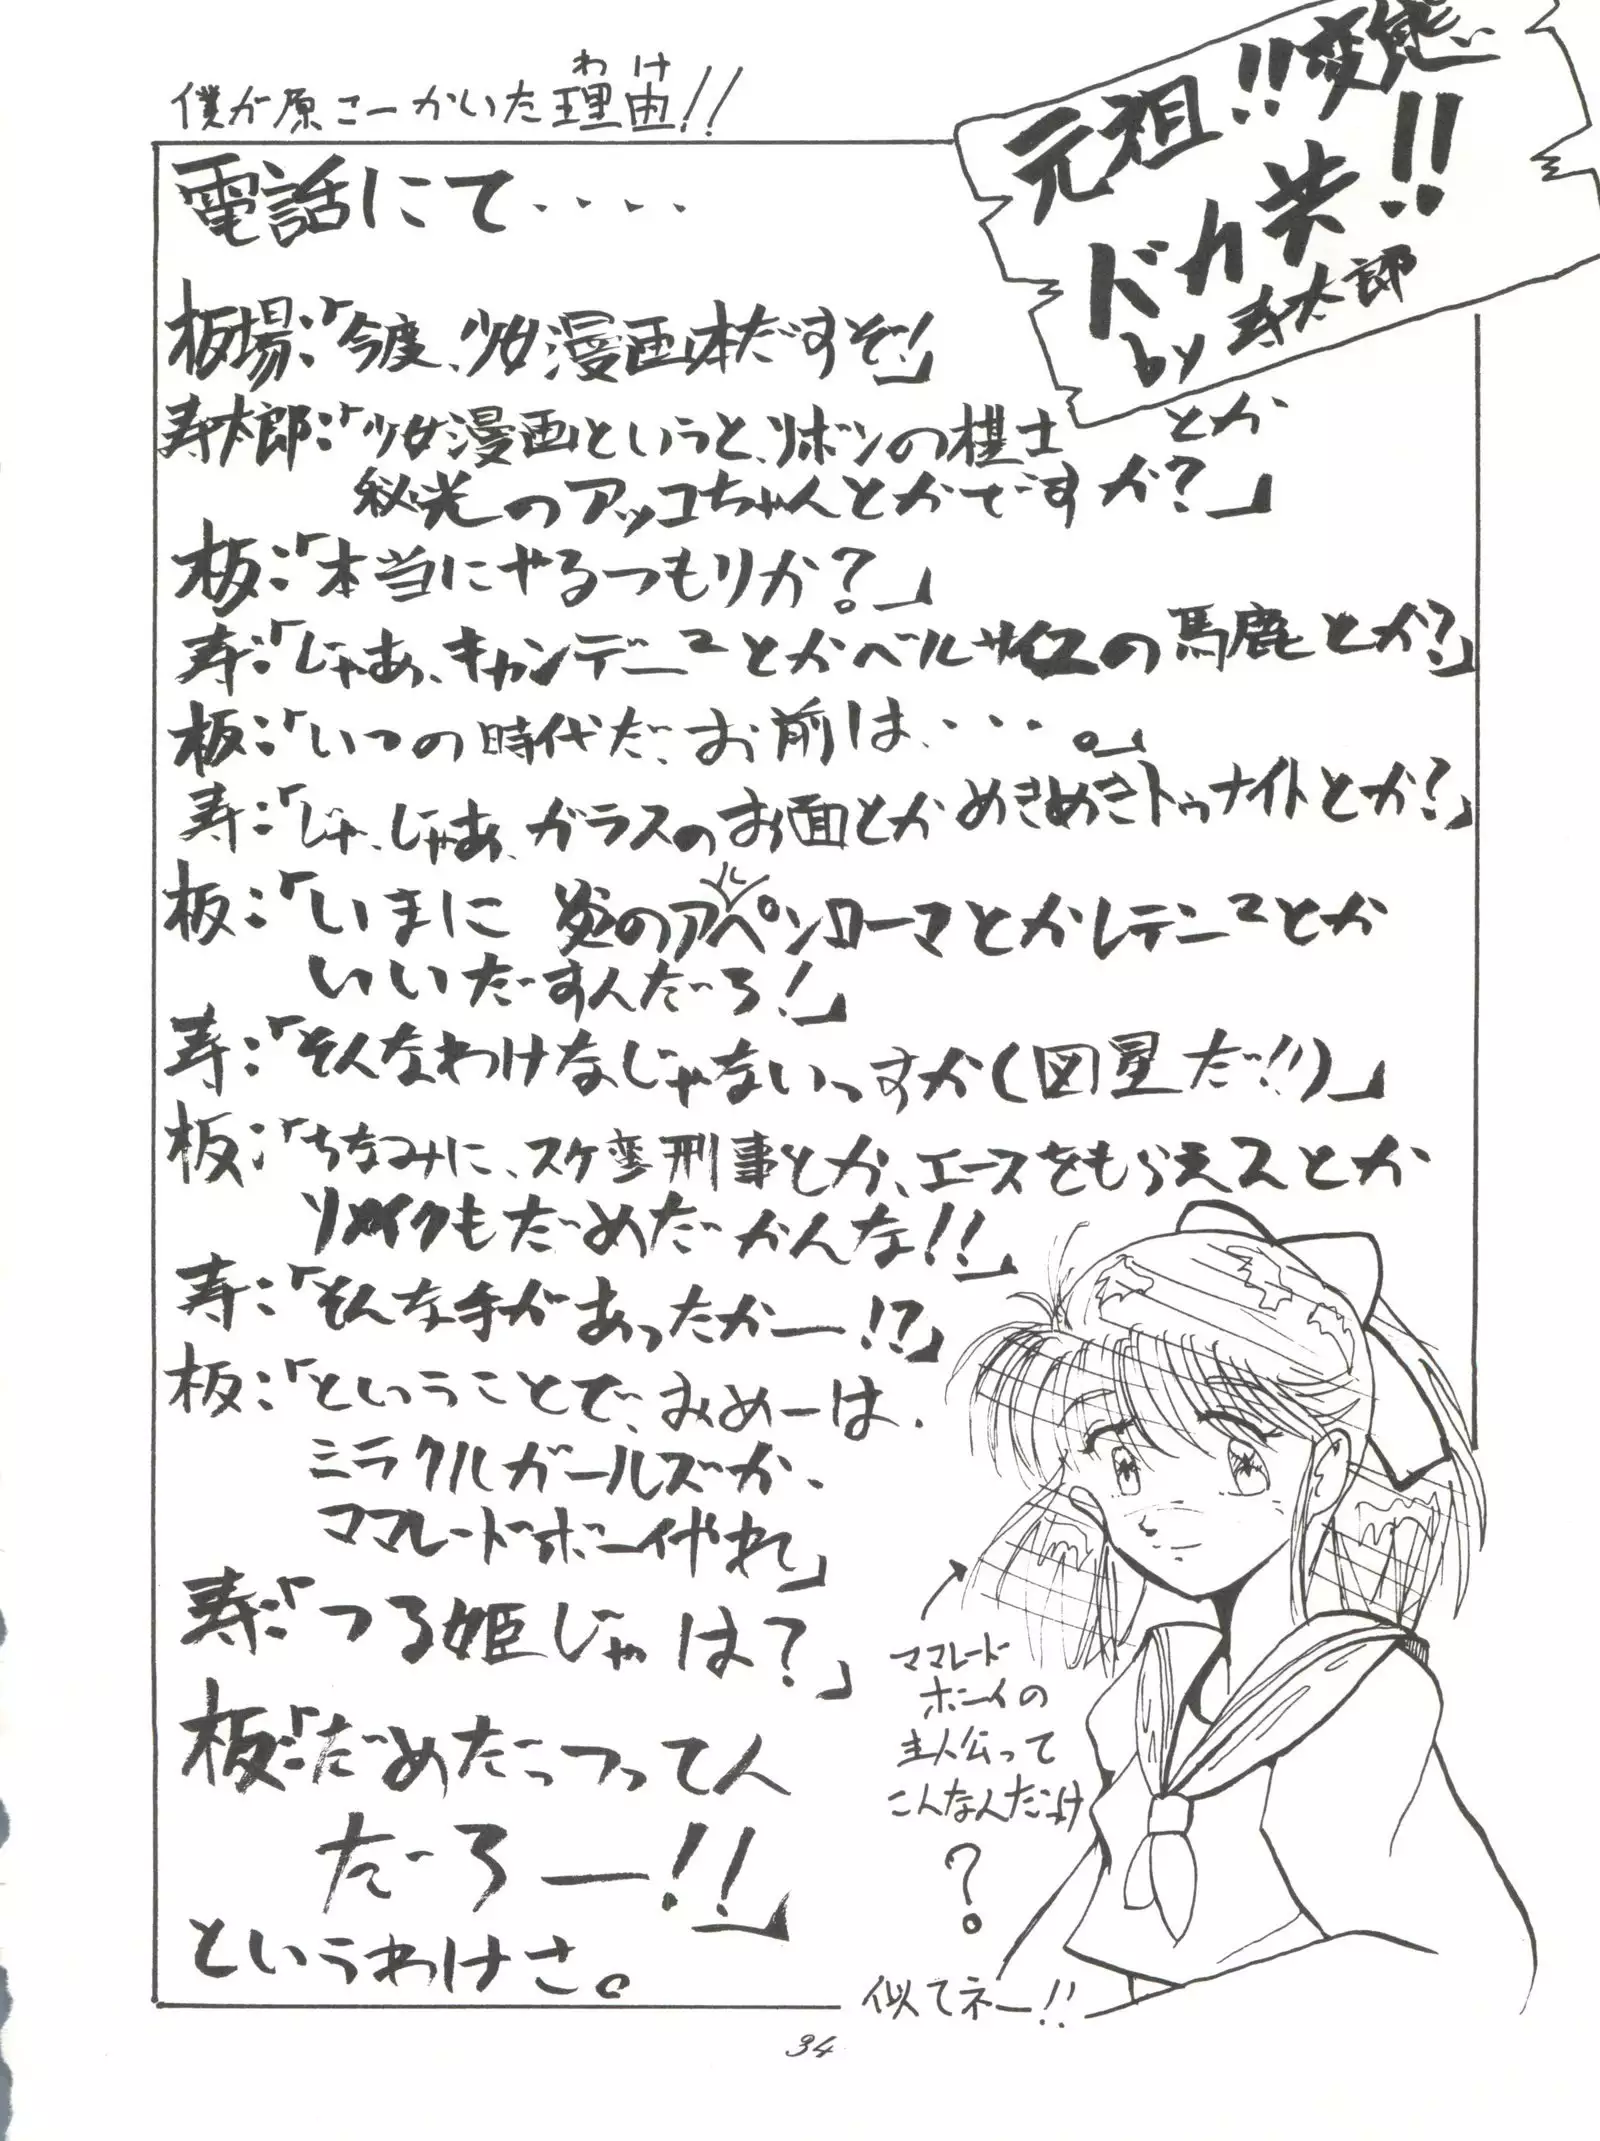 僕が原こーかいた理由!!
わけ
元祖!!変態
ドカ弁!!
by 寿太郎
電話にて・・・・
板場:「今度、少女漫画本だすぞ!」
寿太郎:「少女漫画というと、リボンの棋士とか
秘光のアッコちゃんとかですか?」
板:「本当にやるつもりか?。」
寿:「じゃあ、キャンデニ²とかベルサイユの馬鹿とか?」
板:「いつの時代だ、お前は、・・・。」
寿:「じゃ、じゃあ、ガラスのお面とかめきめきトゥナイトとか?」
板:「いまに 炎のアルペンローマとかレテニ²とか
いいだすんだろ!」
寿:「そんなわけなじゃないっすか(図星だ!!)」
板:「ちなみに、スケ番刑事とか、エースをもらえ2とか
リメイクもだめだかんな!!」
寿:「そんな手があったかー!?」
板:「ということで、おめーは、
ミラクルガールズか、
ママレードボーイやれ」
寿:「つる姫じゃは?」
板:「だめだっつってん
だろー!!」
というわけさ。
ママレード
ボーイの
主人公って
こんなんだっけ
?
似てネー!!
34